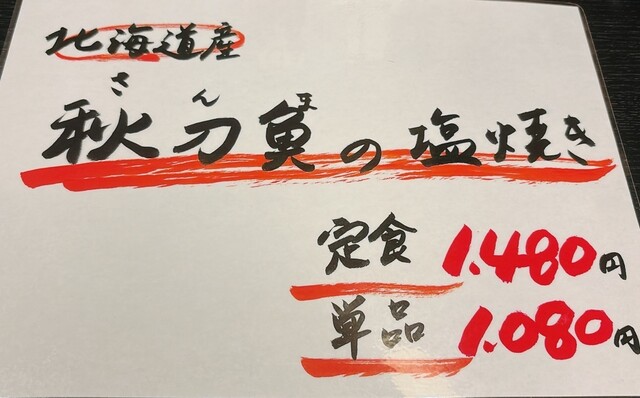 北海道産
さんま
秋刀魚の塩焼き
定食 1.480円
単品 1.080円